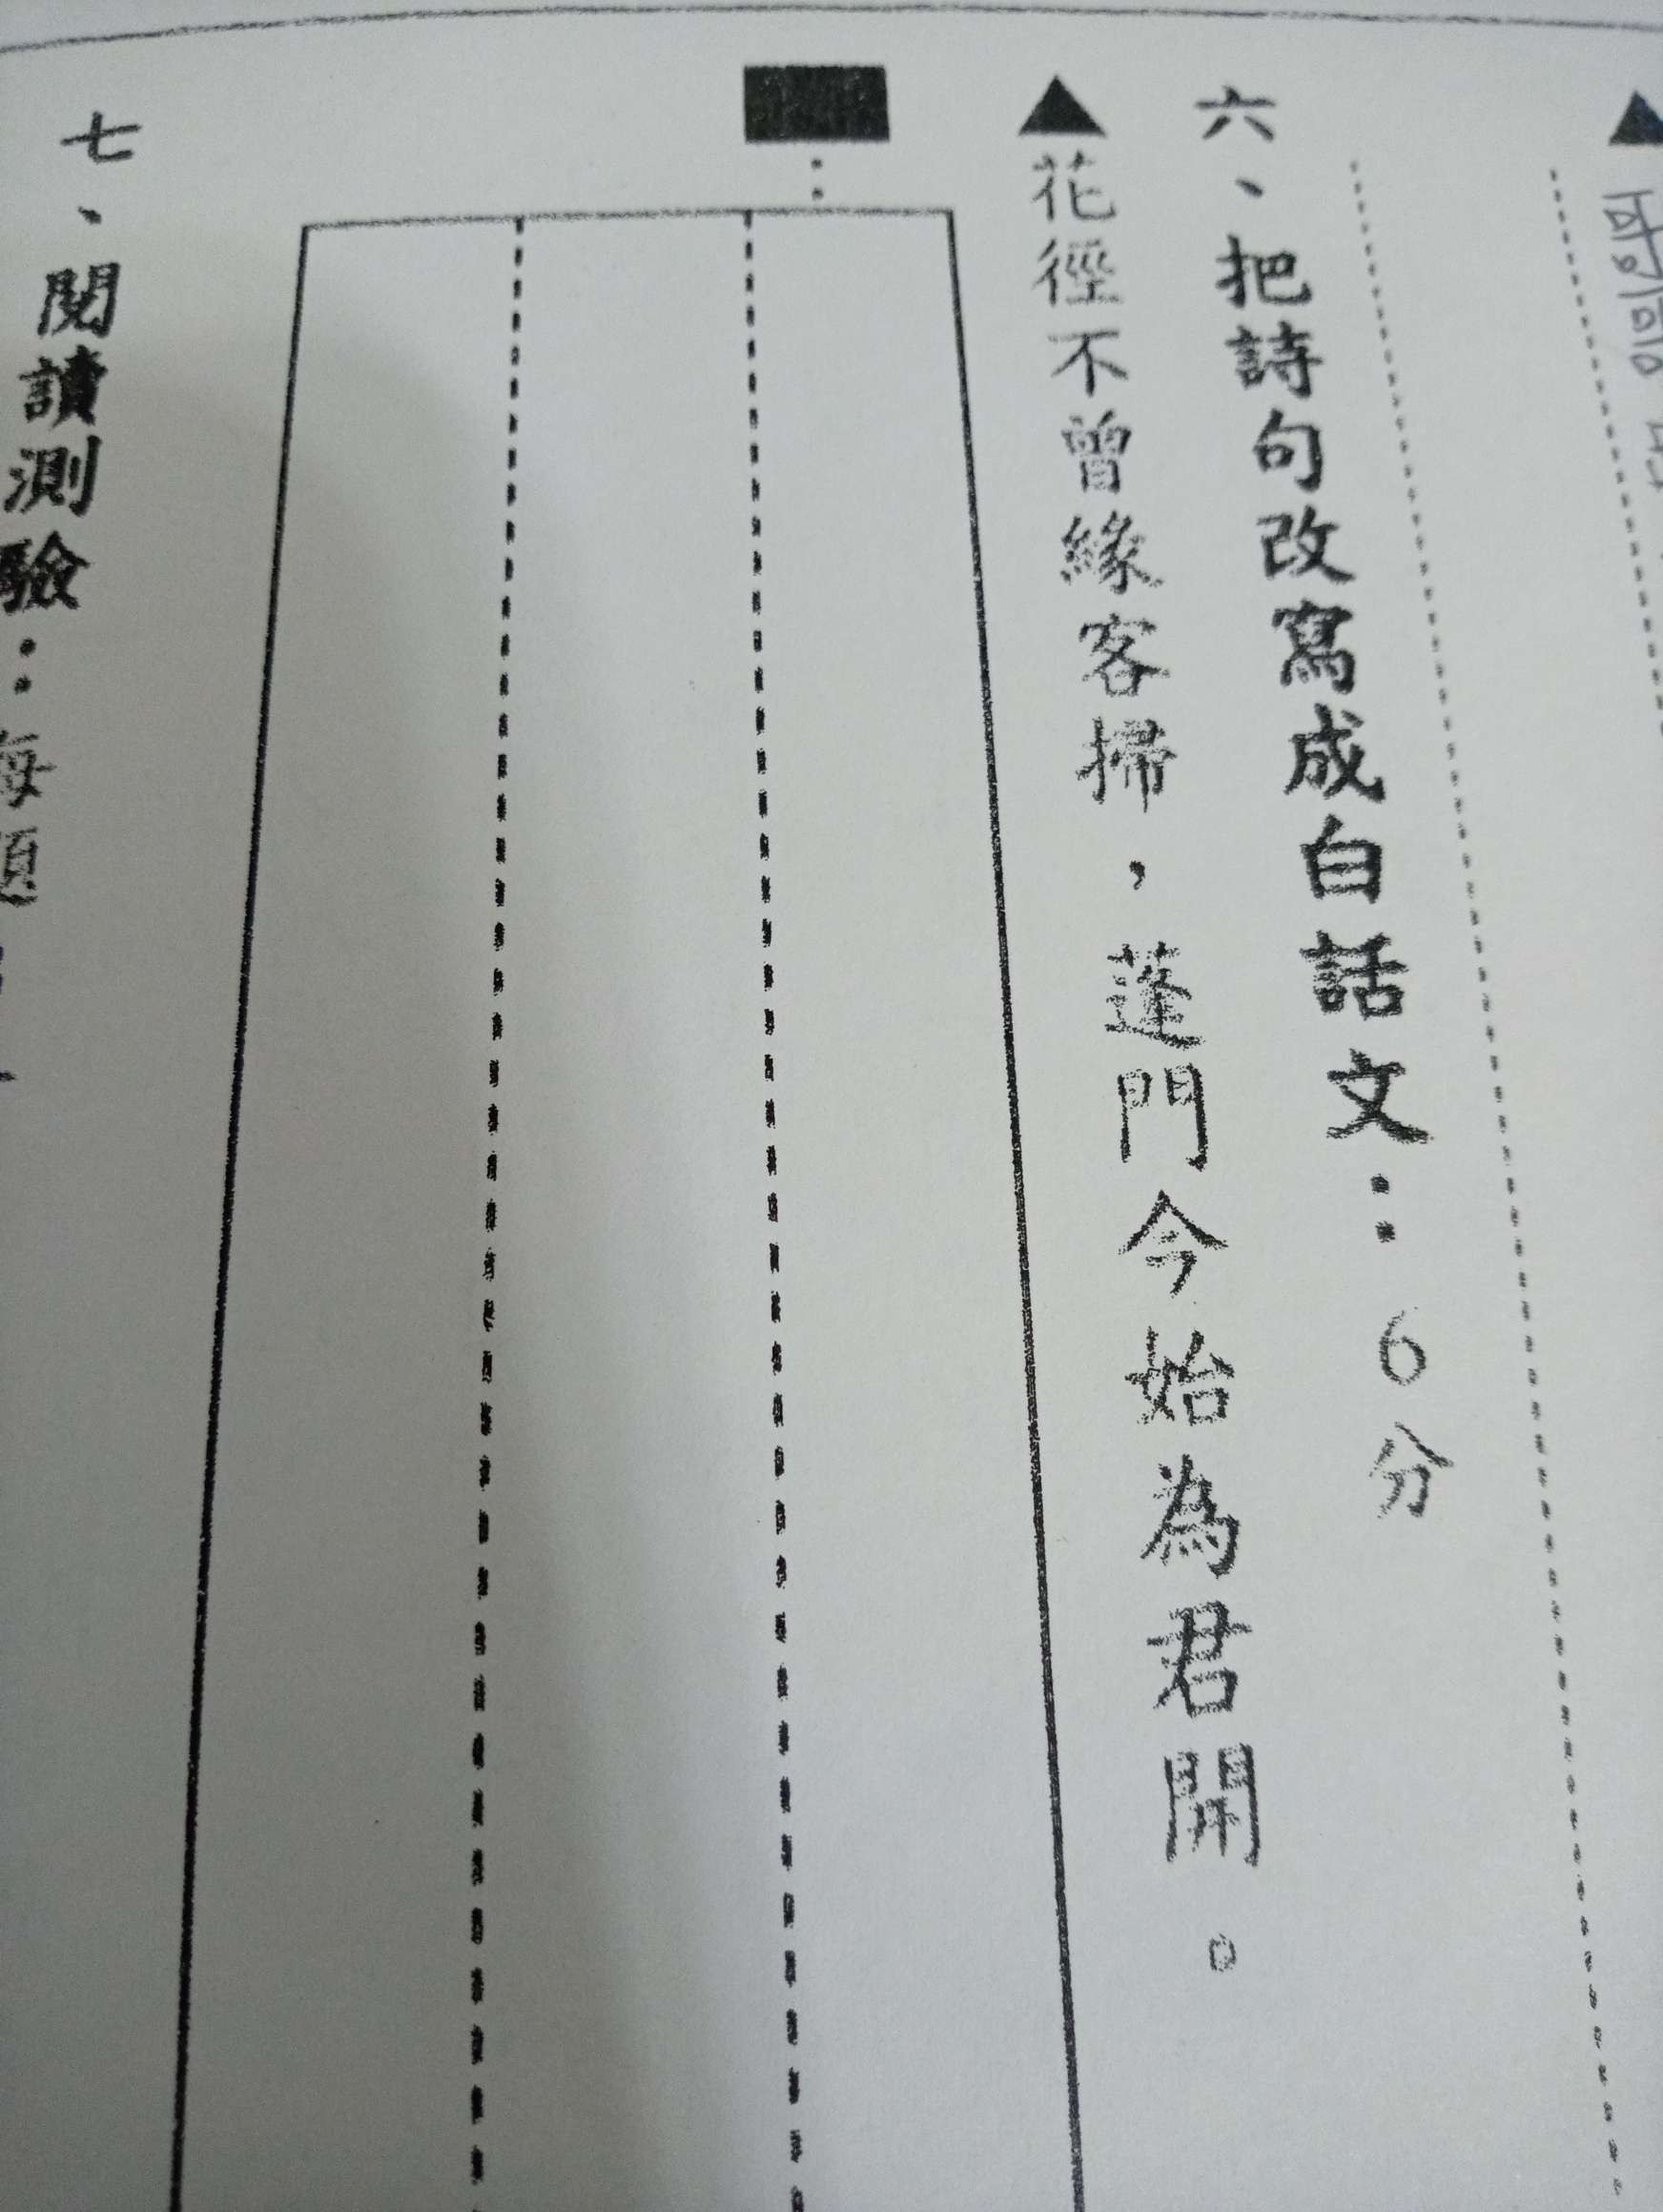 六、把詩句改寫成白話文：6分
▲花徑不曾緣客掃，蓬門今始為君開。
：
七、閱讀測驗：每題